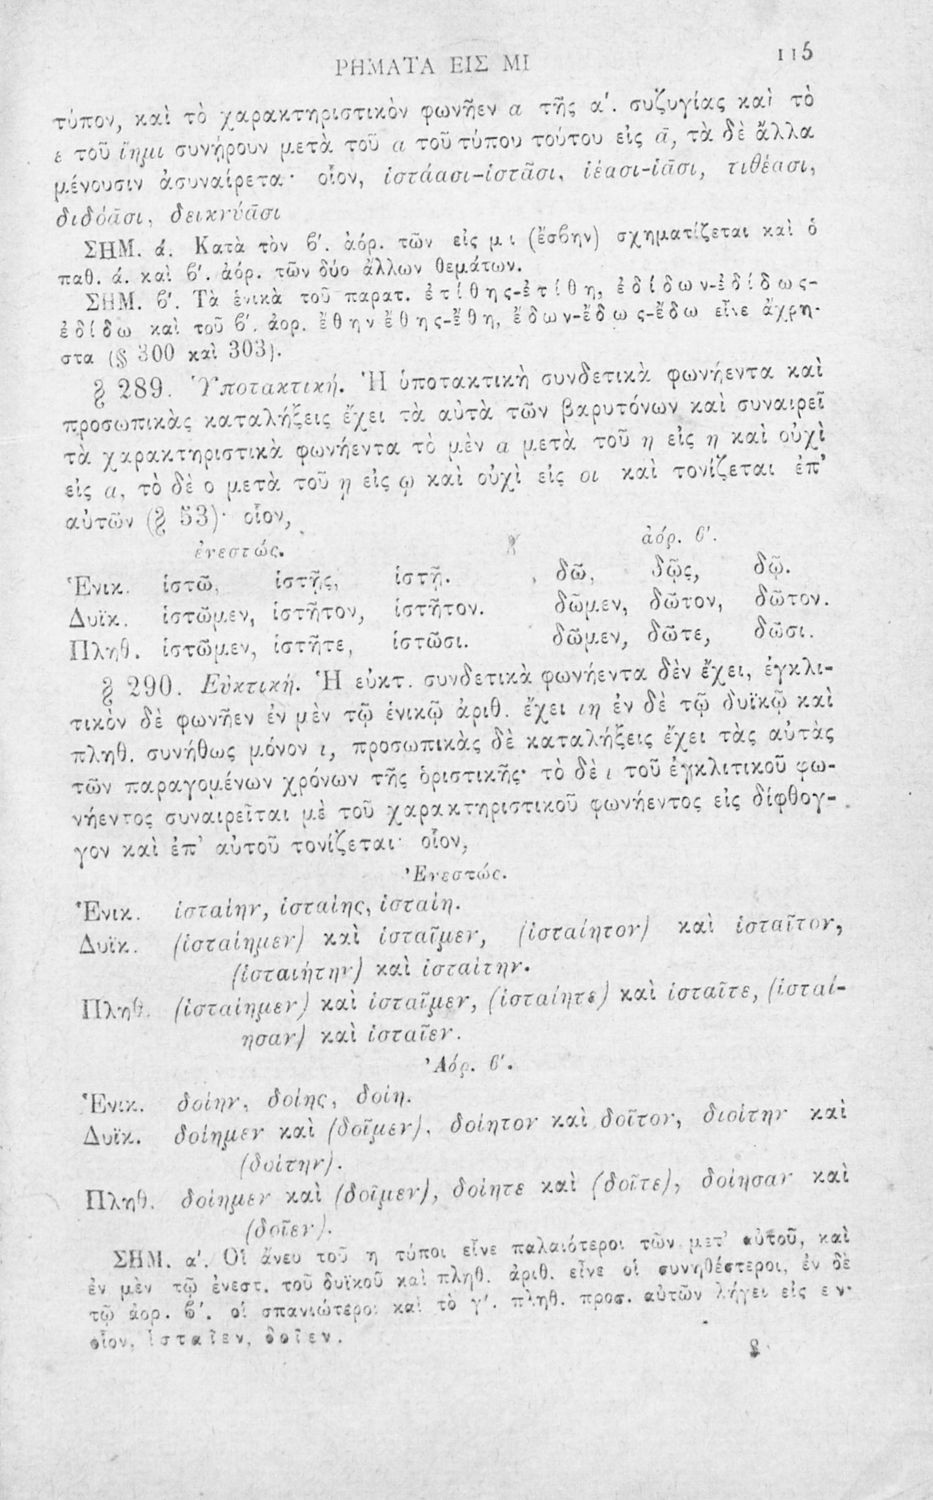 ΡΗΜΑΤΑ ΕΙΣ ΜΙ 115
τύπον, καὶ τὸ χαρακτηριστικὸν φωνῆεν α τῆς α΄. συζυγίας καὶ τὸ
ε τοῦ ἵημι συνῄρουν μετὰ τοῦ α τοῦ τύπου τούτου εἰς ᾶ, τὰ δὲ ἄλλα
μένουσιν ἀσυναίρετα· οἷον, ἱστάασι-ἱστᾶσι, ἱέασι-ἱᾶσι, τιθέασι,
διδόασι, δεικνύασι
ΣΗΜ. ά. Κατὰ τὸν β΄. ἀόρ. τῶν εἰς μι (ἔσβην) σχηματίζεται καὶ ὁ
παθ. ά. καὶ β΄. ἀόρ. τῶν δύο ἄλλων θεμάτων.
ΣΗΜ. β΄. Τὰ ἑνικὰ τοῦ παρατ. ἐτίθης-ἐτίθη, ἐδίδων-ἐδίδως-
ἐδίδω καὶ τοῦ β΄. ἀορ. ἔθην ἔθης-ἔθη, ἔδων-ἔδως-ἔδω εἶνε ἄχρη-
στα (§ 300 καὶ 303).
§ 289. Ὑποτακτική. Ἡ ὑποτακτικὴ συνδετικὰ φωνήεντα καὶ
προσωπικὰς καταλήξεις ἔχει τὰ αὐτὰ τῶν βαρυτόνων καὶ συναιρεῖ
τὰ χαρακτηριστικὰ φωνήεντα τὸ μὲν α μετὰ τοῦ η εἰς η καὶ οὐχὶ
εἰς α, τὸ δὲ ο μετὰ τοῦ ῃ εἰς ῳ καὶ οὐχὶ εἰς οι καὶ τονίζεται ἐπ’
αὐτῶν (§ 53)· οἷον,
ἐνεστώς. ἀόρ. β΄.
Ἑνικ. ἱστῶ, ἱστῇς, ἱστῇ. δῶ, δῷς, δῷ.
Δυϊκ. ἱστῶμεν, ἱστῆτον, ἱστῆτον. δῶμεν, δῶτον, δῶτον.
Πληθ. ἱστῶμεν, ἱστῆτε, ἱστῶσι. δῶμεν, δῶτε, δῶσι.
§ 290. Εὐκτική. Ἡ εὐκτ. συνδετικὰ φωνήεντα δὲν ἔχει, ἐγκλι-
τικὸν δὲ φωνῆεν ἐν μὲν τῷ ἑνικῷ ἀριθ. ἔχει ιη ἐν δὲ τῷ δυϊκῷ καὶ
πληθ. συνήθως μόνον ι, προσωπικὰς δὲ καταλήξεις ἔχει τὰς αὐτὰς
τῶν παραγομένων χρόνων τῆς ὁριστικῆς· τὸ δὲ ι τοῦ ἐγκλιτικοῦ φω-
νήεντος συναιρεῖται μὲ τοῦ χαρακτηριστικοῦ φωνήεντος εἰς δίφθογ-
γον καὶ ἐπ’ αὐτοῦ τονίζεται· οἷον,
Ἐνεστώς.
Ἑνικ. ἱσταίην, ἱσταίης, ἱσταίη.
Δυϊκ. (ἱσταίημεν) καὶ ἱσταῖμεν, (ἱσταίητον) καὶ ἱσταῖτον,
(ἱσταιήτην) καὶ ἱσταίτην.
Πληθ. (ἱσταίημεν) καὶ ἱσταῖμεν, (ἱσταίητε) καὶ ἱσταῖτε, (ἱσταί-
ησαν) καὶ ἱσταῖεν.
Ἀόρ. β΄.
Ἑνικ. δοίην, δοίης, δοίη.
Δυϊκ. δοίημεν καὶ (δοῖμεν), δοίητον καὶ δοῖτον, διοίτην καὶ
(δοίτην).
Πληθ. δοίημεν καὶ (δοῖμεν), δοίητε καὶ (δοῖτε), δοίησαν καὶ
(δοῖεν).
ΣΗΜ. α΄. Οἱ ἄνευ τοῦ η τύποι εἶνε παλαιότεροι τῶν μετ’ αὐτοῦ, καὶ
ἐν μὲν τῷ ἐνεστ. τοῦ δυϊκοῦ καὶ πληθ. ἀριθ. εἶνε οἱ συνηθέστεροι, ἐν δὲ
τῷ ἀορ. β΄. οἱ σπανιώτεροι καὶ τὸ γ΄. πληθ. προσ. αὐτῶν λήγει εἰς εν·
οἷον, ἱσταῖεν, δοῖεν.
8